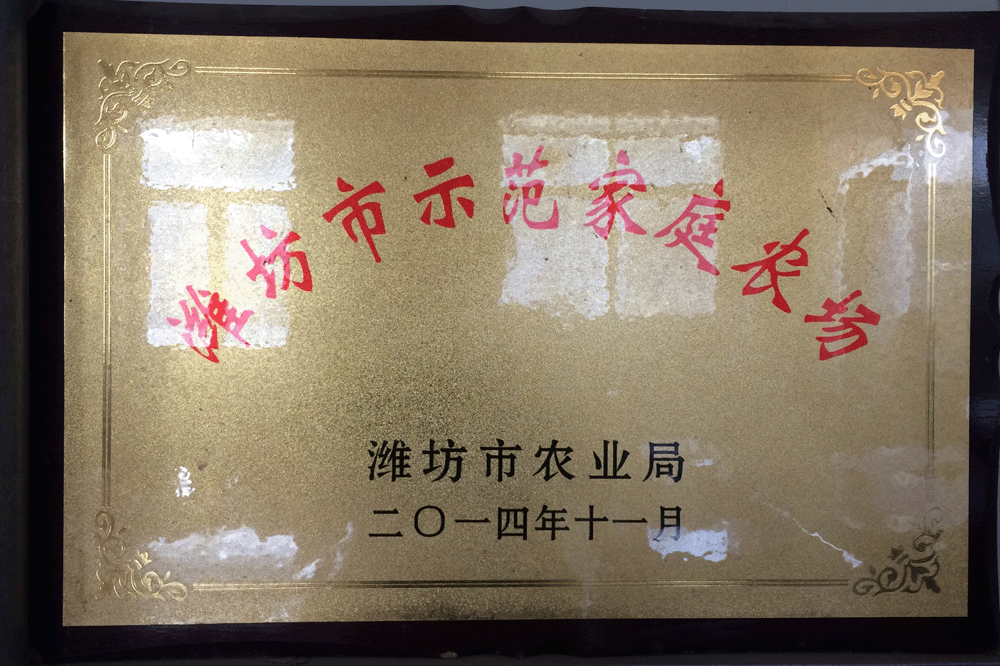 潍坊市示范家庭农场
潍坊市农业局
二〇一四年十一月